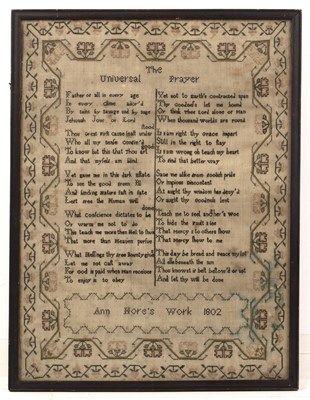 The
Universal Prayer
Father of all in every age
In every clime ador'd
By saint by savage and by sage
Jehovah Jove or Lord
Thou great first cause least under
stood
Who all my sense confin'd
To know but this that thou art
good
And that myself am blind
Yet gave me in this dark estate
To see the good from ill
And binding nature fast in fate
Left free the Human will
What Conscience dictates to be
done
Or warns me not to do
This teach me more than Hell to shun
That more than Heaven pursue
What blessings thy free bounty gives
Let me not cast away
For God is paid when man receives
To enjoy is to obey
Yet not to earth's contracted span
Thy goodness let me bound
Or think thee Lord alone of man
When thousand worlds are round
If I am right thy grace impart
Still in the right to stay
If I am wrong oh teach my heart
To find that better way
Save me alike from foolish pride
Or impious discontent
At aught thy wisdom has deny'd
Or aught thy goodness lent
Teach me to feel another's woe
To hide the fault I see
That mercy I to others show
That mercy show to me
This day be bread and peace my lot
All beneath the sun
Thou knowest if best bestow'd or not
And let thy will be done
Ann Hore's Work 1802